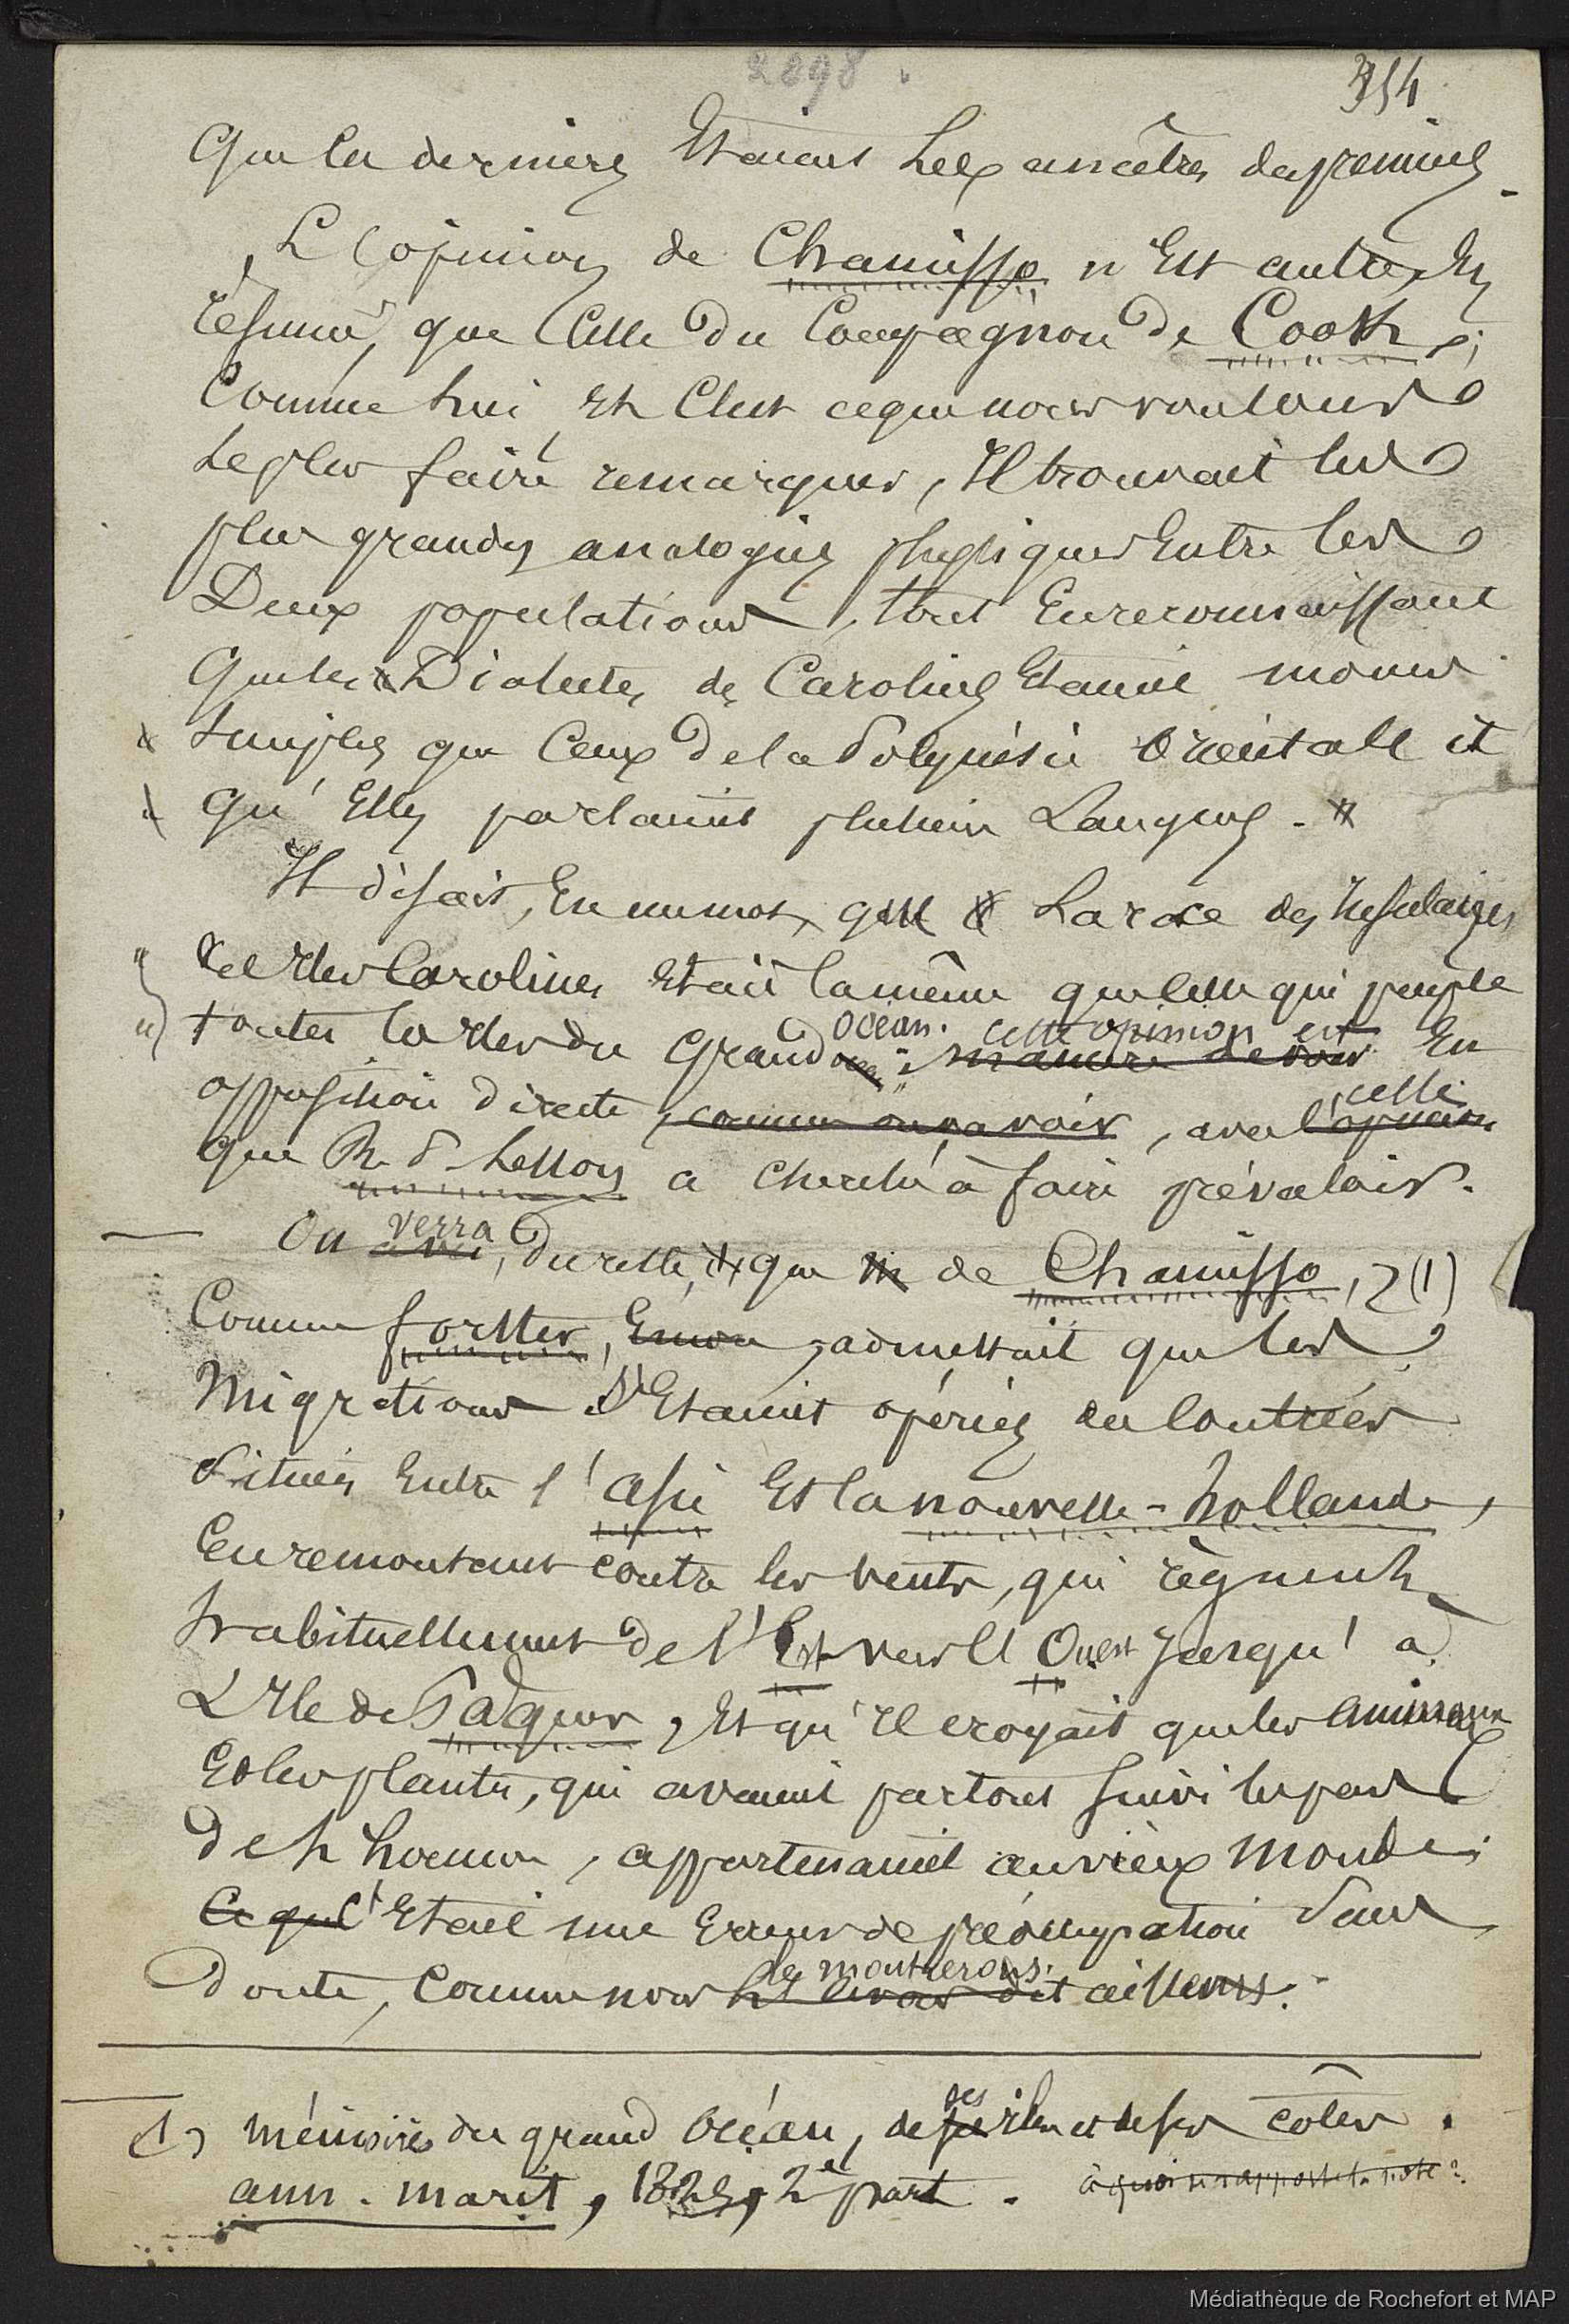 2898
354
que les derniers étaient les ancêtres des premiers.
L'opinion de Chamisso n'est autre, en
résumé, que celle du compagnon de Cook ;
comme lui, et c'est ce que nous voulons
le plus faire remarquer, il trouvait les
plus grandes analogies physiques entre les
deux populations, tout en reconnaissant
que les Dialectes des Carolines étaient moins
simples que ceux de la Polynésie orientale et
qu'elles parlaient plusieurs Langues.
Il disait, en un mot, que la race des Insulaires
des Iles Carolines était la même que celle qui peuple
océan. cette opinion est
toutes les Iles du Grand manière de voir En
celle
opposition directe, comme on va voir, avec l'opinion
que R. P. Lesson a cherché à faire prévaloir.
verra
On, du reste, que de Chamisso, (1)
comme forster, admettait que les
migrations s'étaient opérées des contrées
situées entre l'asie et la nouvelle-hollande,
en remontant contre les vents, qui règnent
habituellement de l'Est vers l'Ouest jusqu'à
L'Ile de Pâques, et qu'il croyait que les animaux
et les plantes, qui avaient partout suivi les pas
de l'homme, appartenaient au vieux monde ;
Ce qui c'était une erreur de préoccupation sans
le montrerons.
doute, comme nous l'avons dit ailleurs.
des
(1) mémoires du grand Océan, de ses iles et de ses côtes.
ann. marit, 1825, 2e part. à quoi se rapporte la note ?
Médiathèque de Rochefort et MAP